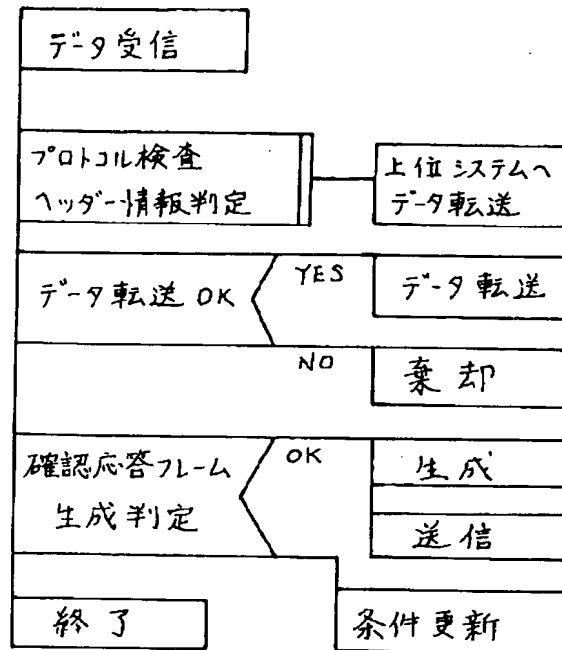 データ受信
プロトコル検査
ヘッダー情報判定
上位システムへ
データ転送
データ転送 OK
YES
データ転送
NO
棄却
確認応答フレーム
生成判定
OK
生成
送信
終了
条件更新